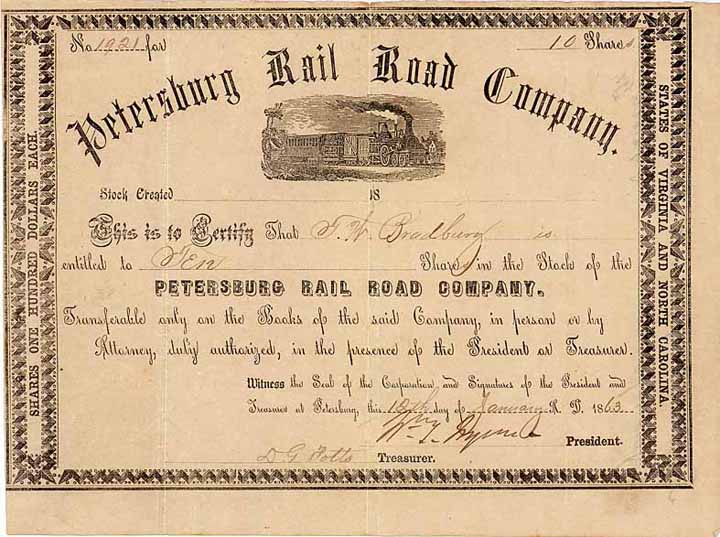 No 1921 for 10 Shares
Petersburg Rail Road Company.
Stock Created 18
This is to Certify That T. W. Bradbury is
entitled to Ten Shares in the Stock of the
PETERSBURG RAIL ROAD COMPANY.
Transferable only on the Books of the said Company, in person or by
Attorney, duly authorized, in the presence of the President or Treasurer.
Witness the Seal of the Corporation and Signatures of the President and
Treasurer at Petersburg, this 10th day of January A. D. 1863
President.
D G Potts Treasurer.
SHARES ONE HUNDRED DOLLARS EACH.
STATES OF VIRGINIA AND NORTH CAROLINA.